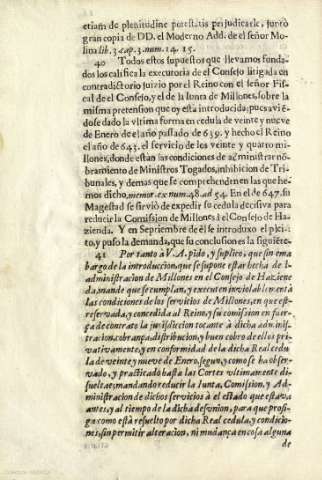 etiam de plenitudine potestatis prejudicare, juntò
gran copia de DD. el Moderno Add. de el señor Mo-
lina lib. 3. cap. 3. num. 14. 15.
40 Todos estos supuestos que llevamos funda-
dos los califica la executoria de el Consejo litigada en
contradictorio juizio por el Reyno con el señor Fis-
cal de el Consejo, y el de la Iunta de Millones, sobre la
misma pretension que oy està introducida; pues avié-
dose dado la vltima forma en cedula de veinte y nueve
de Enero de el año passado de 639. y hecho el Reino
el año de 643. el servicio de los veinte y quatro mi-
llones, donde estàn las condiciones de administrar nó-
bramiento de Ministros Togados, inhibicion de Tri-
bunales, y demas que se comprehenden en las que he-
mos dicho, memor. ex num. 48. ad 54. En el de 647. su
Magestad se sirviò de expedir su cedula decisiva para
reducir la Comission de Millones à el Consejo de Ha-
zienda. Y en Septiembre de èl se introduxo el plei-
to, y puso la demanda, que su conclusion es la siguiéte.
41 Por tanto à V. A. pido, y suplico, que sin em-
bargo de la introduccion, que se supone estar hecha de la
administracion de Millones en el Consejo de Hazien-
da, mande que se cumplan, y executen inviolablemente
las condiciones de los servicios de Millones, en que est-
reservada, y concedida al Reyno, y su comision en fuer-
ça de contrato la jurisdiccion tocante à dicha admi-
tracion, cobrança, distribucion, y buen cobro de ellos pri-
vativamente, y en conformidad de la dicha Real cedu
la de veinte y nueve de Enero, segun, y como se ha obser-
vado, y practicado hasta las Cortes vltimamente di-
sueltas; mandando reducir la Iunta, Comision, y Ad-
ministracion de dichos servicios à el estado que estava
antes, y al tiempo de la dicha desvnion, para que prosi-
ga como està resuelto por dicha Real cedula, y condicio-
nes, sin permitir alteracion, ni mudança en cosa alguna
de